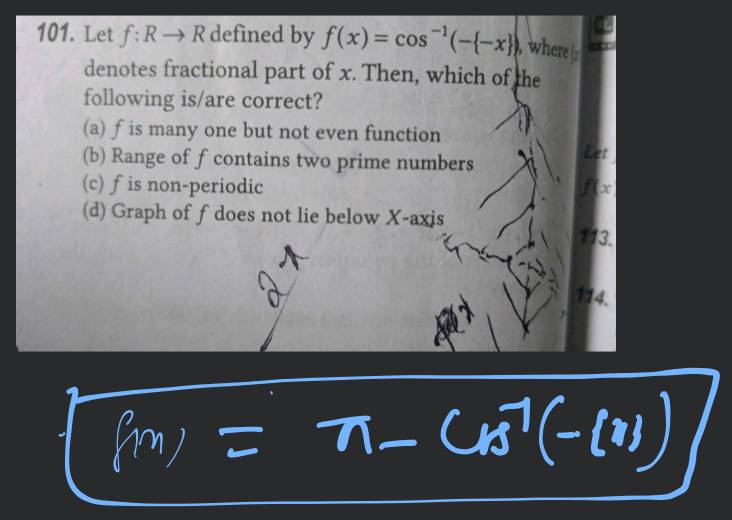 101. Let f : R → R defined by f(x) = cos⁻¹(-{-x}), where {x
denotes fractional part of x. Then, which of the
following is/are correct?
(a) f is many one but not even function
(b) Range of f contains two prime numbers
(c) f is non-periodic
(d) Graph of f does not lie below X-axis
Let
f(x
113.
114.
2π
f(x) = π - cos⁻¹(-{x})